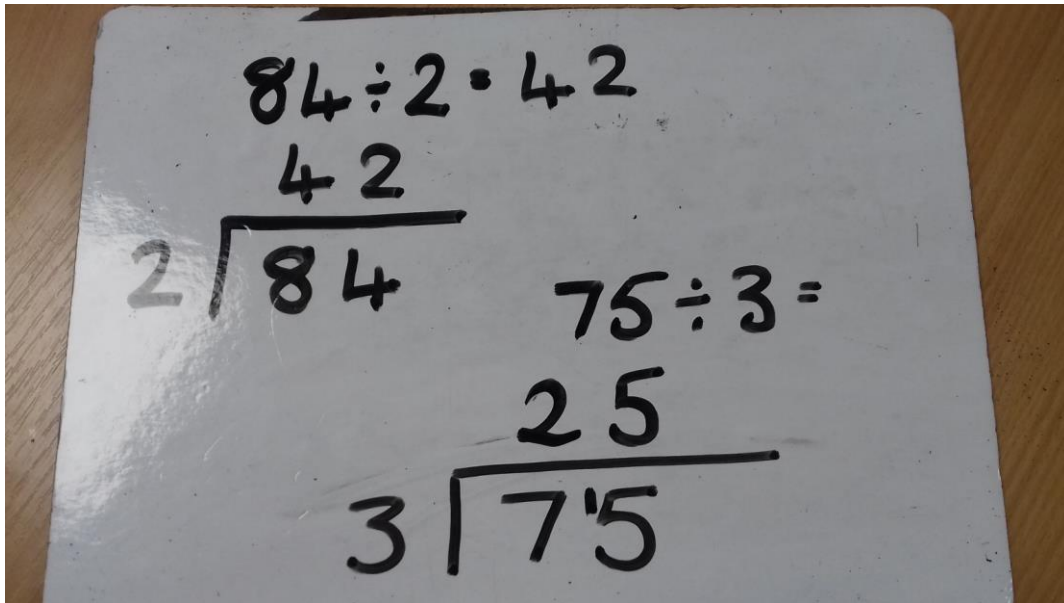 84÷2=42
42
2 84
75÷3=
25
3 7'5